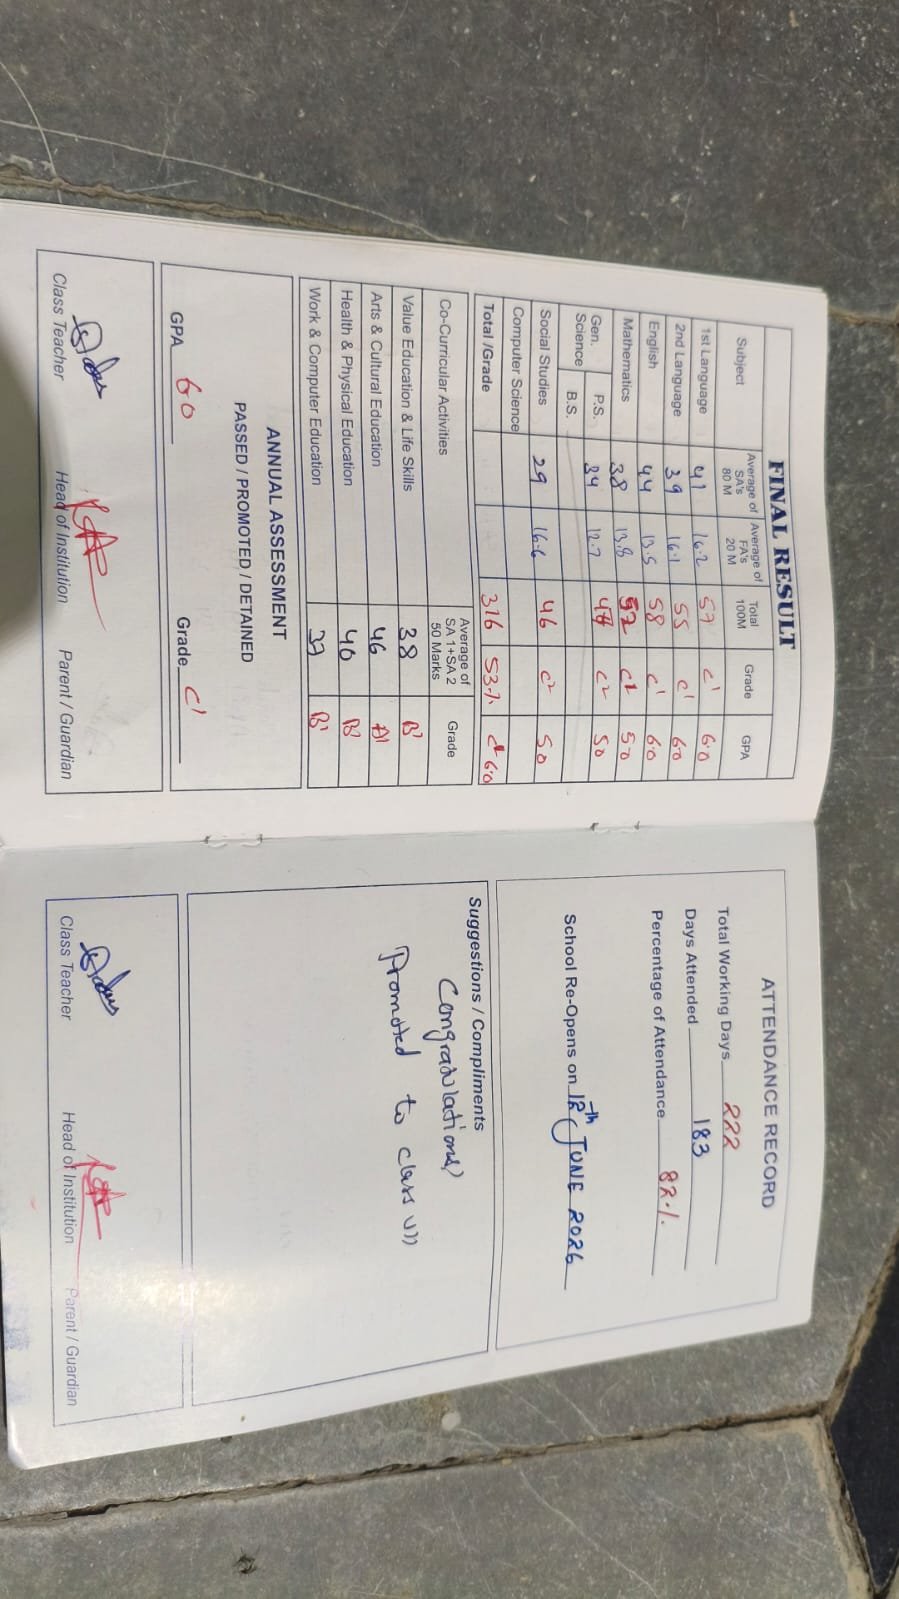 FINAL RESULT
Subject Average of SA's 80 M Average of FA's 20 M Total 100M Grade GPA
1st Language 41 16.2 57 C1 6.0
2nd Language 39 16.1 55 C1 6.0
English 44 13.5 58 C1 6.0
Mathematics 38 13.8 52 5.0
Gen. Science P.S. 34 12.7 C2 50
B.S.
Social Studies 29 16.6 46 C2 50
Computer Science
Total /Grade 316 53% 6.0
Co-Curricular Activities Average of SA 1+SA 2 50 Marks Grade
Value Education & Life Skills 38 B1
Arts & Cultural Education 46 A1
Health & Physical Education 40
Work & Computer Education 37 B1
ANNUAL ASSESSMENT
PASSED / PROMOTED / DETAINED
GPA 60 Grade C1
Class Teacher Head of Institution Parent / Guardian
ATTENDANCE RECORD
Total Working Days 222
Days Attended 183
Percentage of Attendance 82%
School Re-Opens on 12th JUNE 2026
Suggestions / Compliments
Congratulations
Promoted to class VII
Class Teacher Head of Institution Parent / Guardian